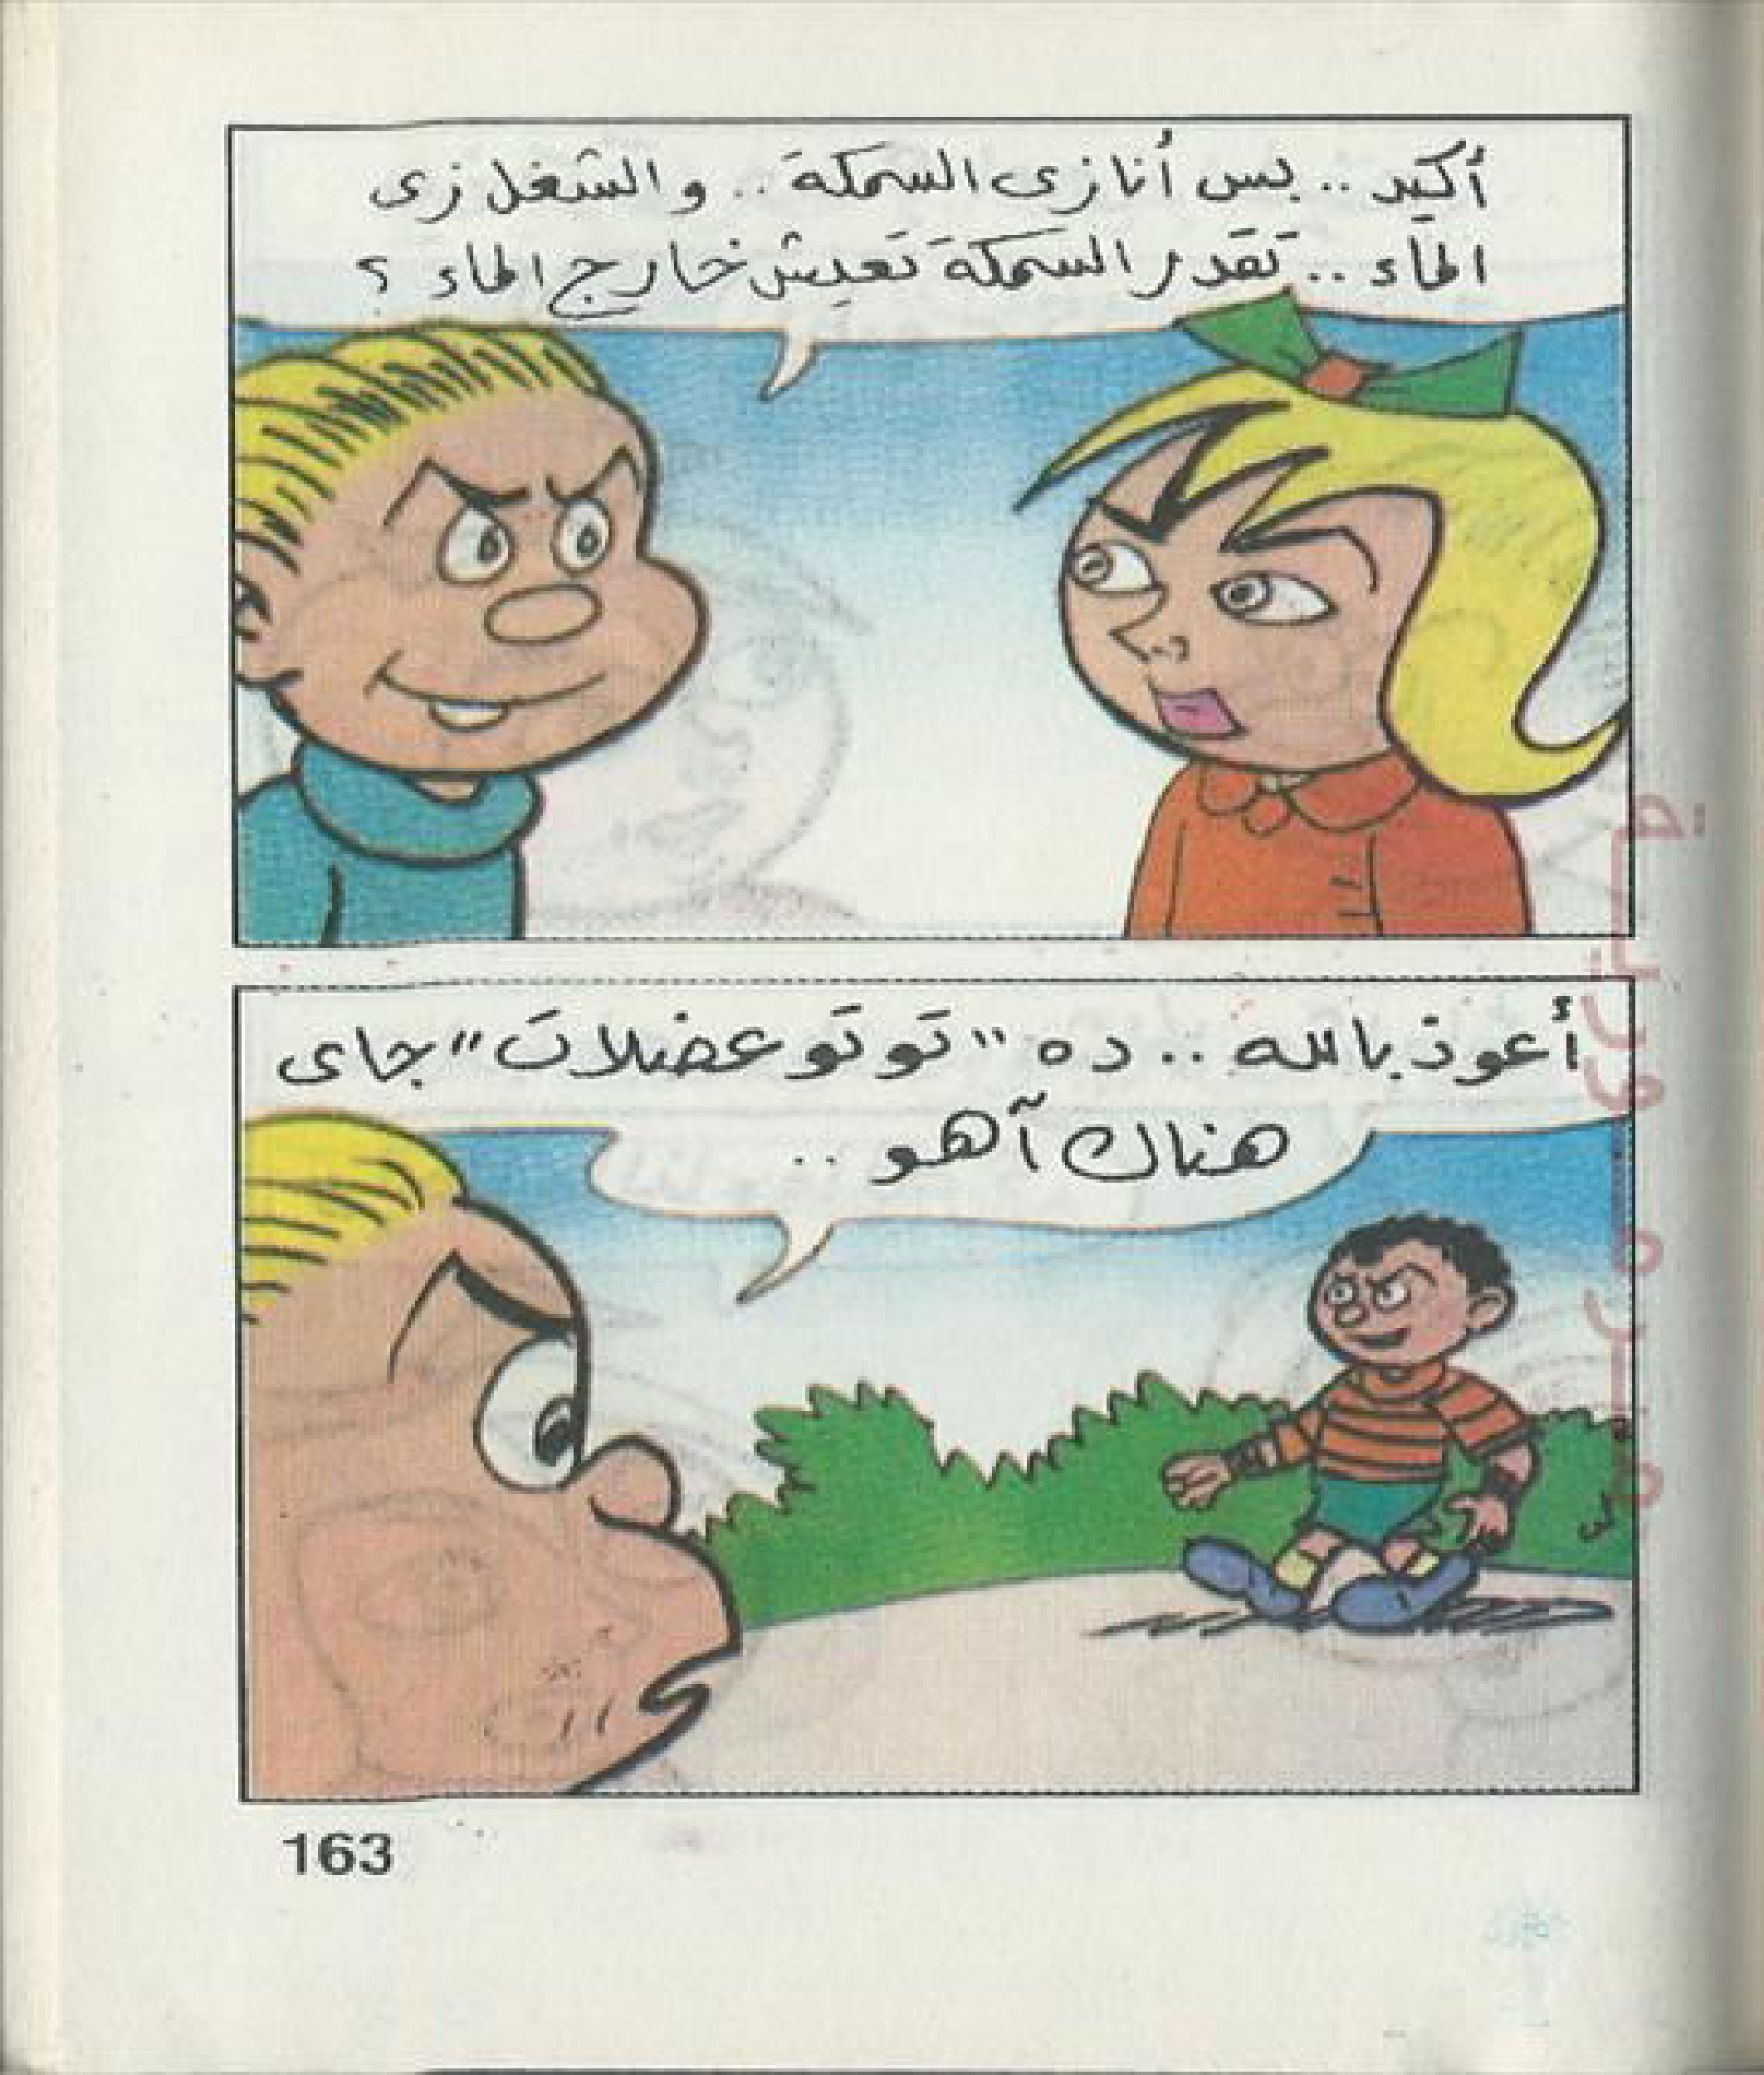 أكيد .. بس أنا زى السمكة .. والشغل زى
الماء .. تقدر السمكة تعيش خارج الماء ؟
أعوذ بالله .. ده "توتو عضلات" جاى
هناك آهو ..
163